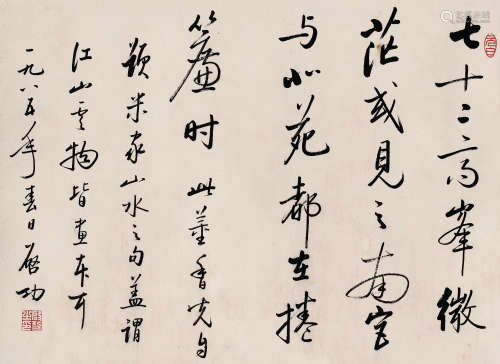 七十二高峯微
茫或見之南宮
与北苑都在捲
簾时 此董香光自
題米家山水之句蓋謂
江山雲物皆畫本耳
一九八五年春日启功